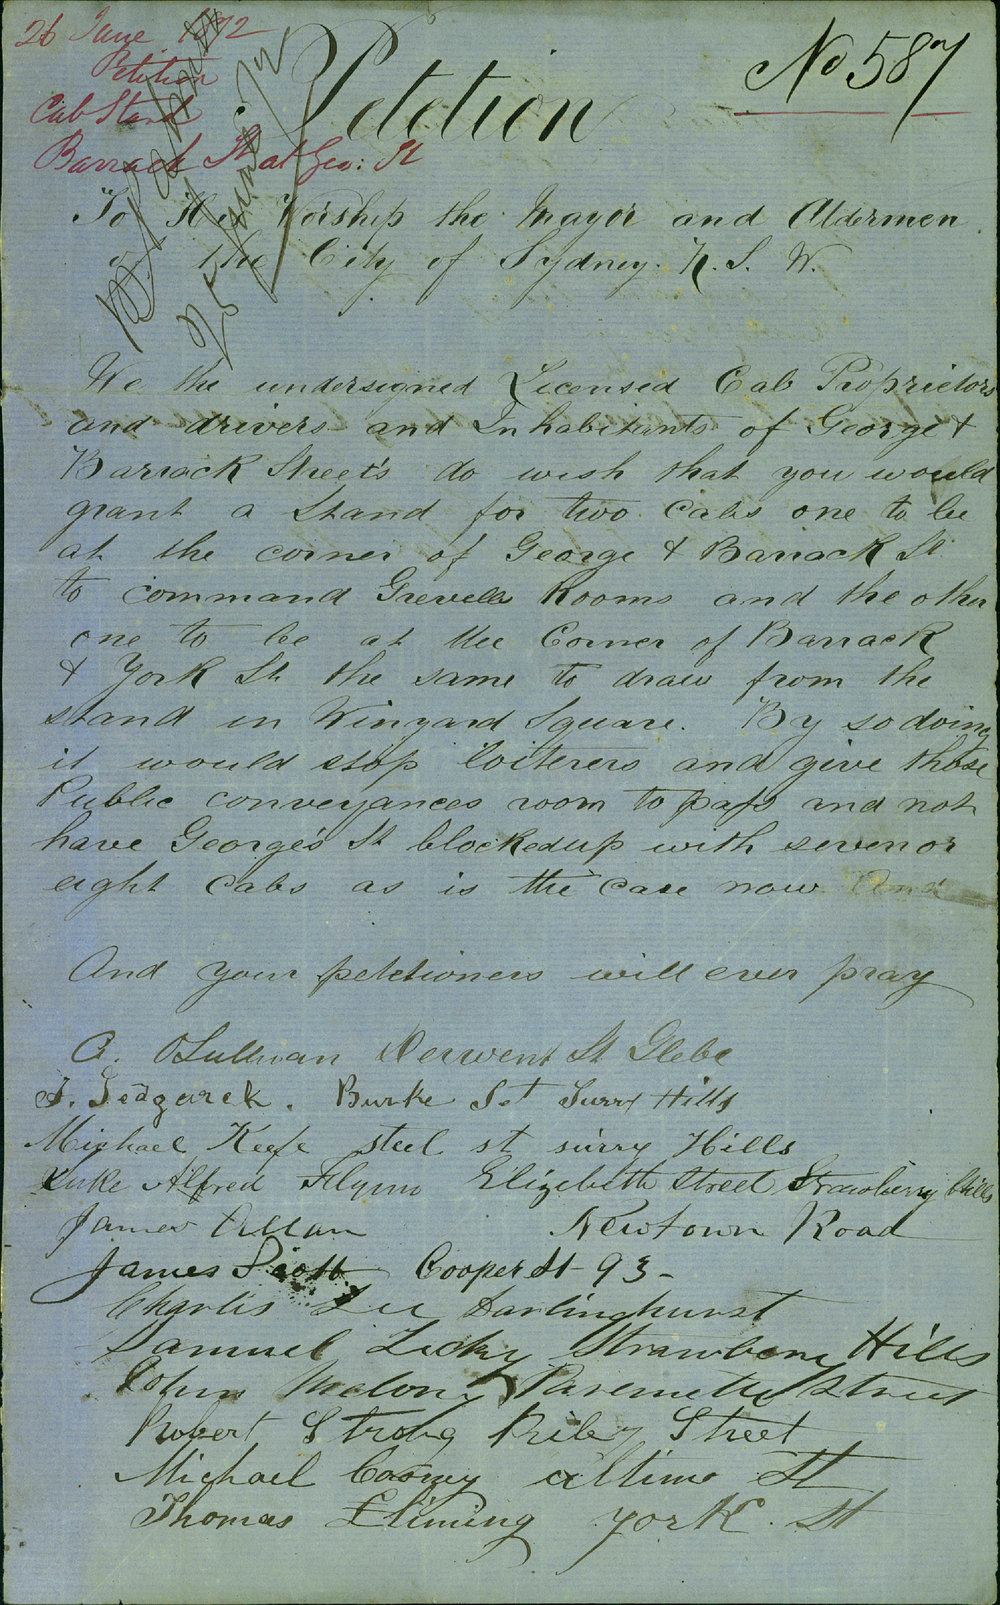 26 June 1872
Petition
Cab Stand
Barrack St at Geo: St
No 587
Petition
25 June /72
To His Worship the Mayor and Aldermen
of the City of Sydney N. S. W.
We the undersigned Licensed Cab Proprietors
and drivers and Inhabitants of George &
Barrack Street's do wish that you would
grant a Stand for two Cabs one to be
at the corner of George & Barrack St
to command Grevelle Rooms and the other
one to be at the Corner of Barrack
& York St the same to draw from the
stand in Winyard Square. By so doing
it would stop loiterers and give those
Public conveyances room to pass and not
have George's St blocked up with seven or
eight Cabs as is the case now And
And your petetioners will ever pray
C. OSullivan Derwent St Glebe
Burke St Surry Hills
Michael Keefe steel st surry Hills
Luke Alfred Flynn Elizibeth Street Strawberry hills
James Allan Newtown Road
James Scott Cooper St 93-
Charles Lee Darlinghurst
Samuel Strawbery Hills
John Melony Street
Robert Strong Riley Street
Michael altimo St
Thomas York St